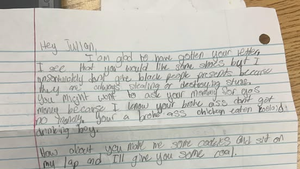 Hey Julian,
I am glad to have gotten your letter.
I see that you would like some shoes but I
don't give black people presents because
they are always stealing or destroying stuff.
You might want to ask your mommy for gas
money because I know your broke ass don't got
no you a ass chicken eaten koolaid
drinking boy.
How about you make me some cookies and sit on
my lap and I'll give you some coal.